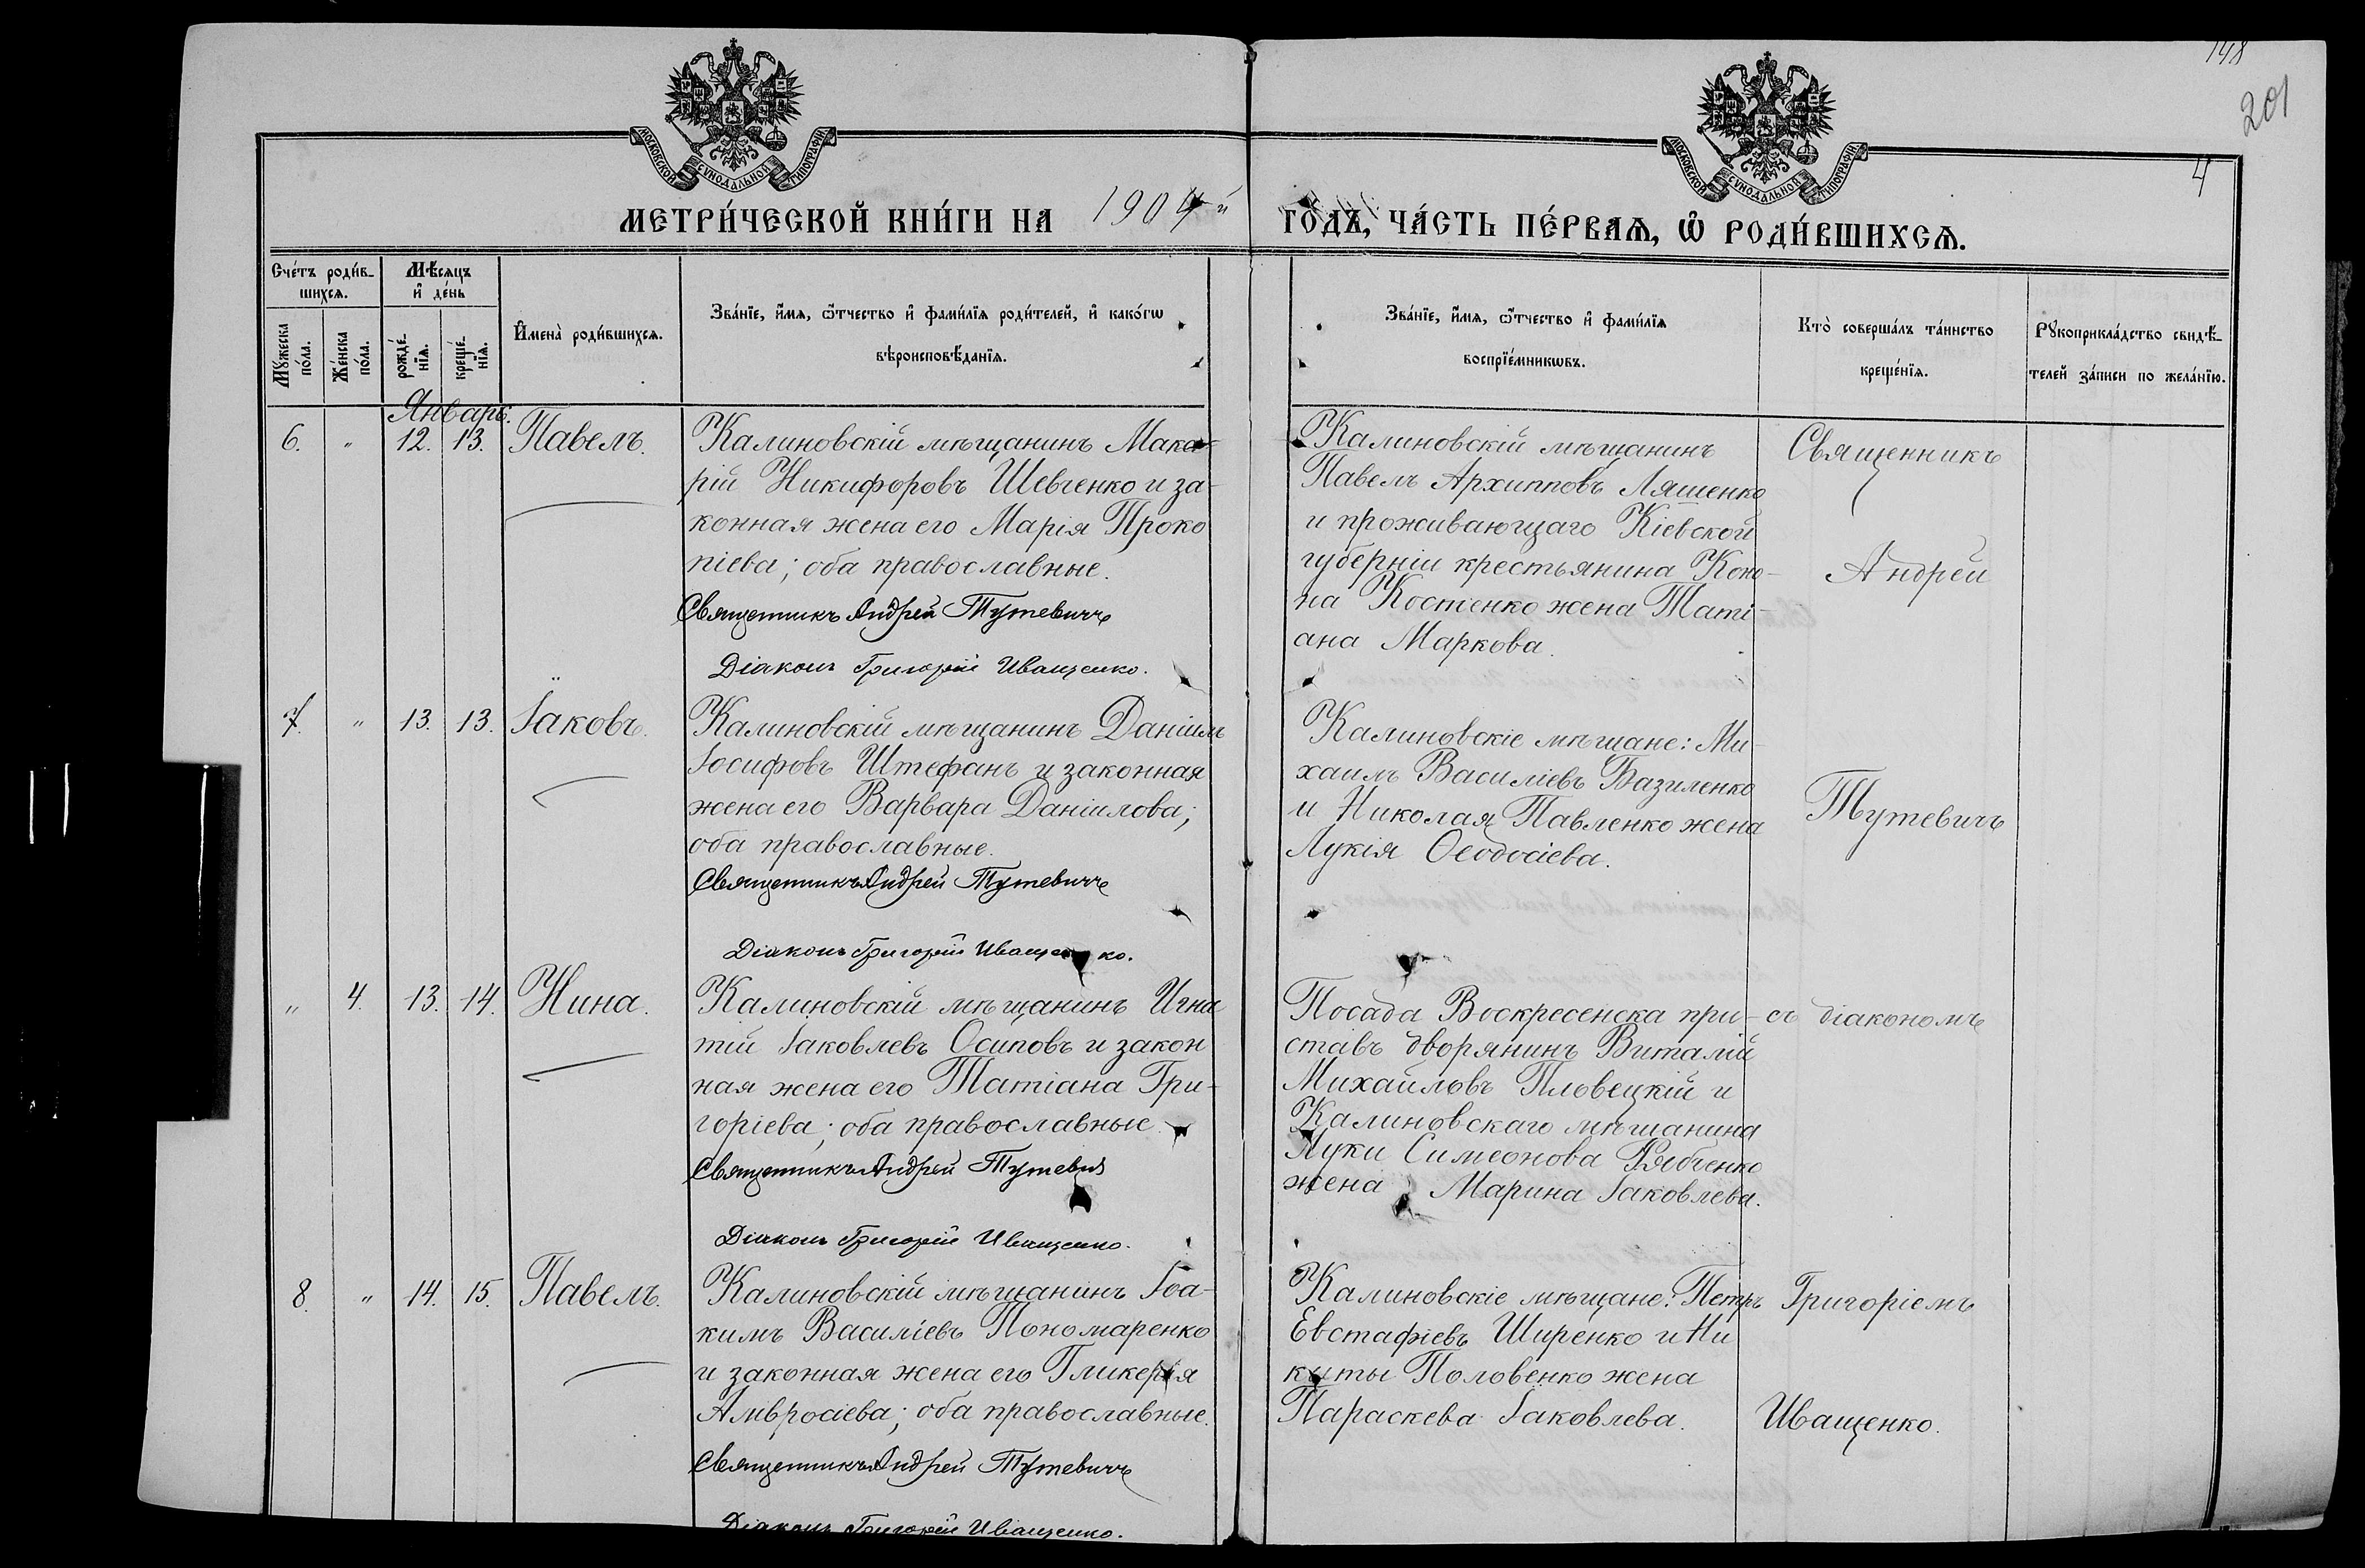 148
201
4
МОСКОВСКОЙ СѴНОДАЛЬНОЙ ТИПОГРАФІИ
МОСКОВСКОЙ СѴНОДАЛЬНОЙ ТИПОГРАФІИ
МЕТРИ́ЧЕСКОЙ КНИ́ГИ НА 1904й ГО́ДЪ, ЧА́СТЬ ПЕ́РВАѦ, Ѡ҆ РОДИ́ВШИХСѦ.
Сче́тъ роди́в-
шихсѧ.
Мꙋ́жеска по́ла.
Же́нска по́ла.
Мѣ́сѧцъ
и҆ де́нь
рожде́-нїѧ.
креще́-нїѧ.
И҆мена̀ роди́вшихсѧ.
Зва́нїе, и҆́мѧ, ѻ҆́тчество и҆ фами́лїѧ роди́телей, и҆ како́гѡ
вѣроисповѣ́данїѧ.
Зва́нїе, и҆́мѧ, ѻ҆́тчество и҆ фами́лїѧ
воспрїе́мникѡвъ.
Кто̀ соверша́лъ та́инство
креще́нїѧ.
Рꙋкоприкла́дство свидѣ́-
телей за́писи по жела́нїю.
Январь.
6. " 12. 13. Павелъ.
Калиновскій мѣщанинъ Мака-
рій Никифоровъ Шевченко и за-
конная жена его Марія Проко
піева; оба православные.
Священникъ Андрей Тутевичъ
Діаконъ Григорій Иващенко.
Калиновскій мѣщанинъ
Павелъ Архипповъ Ляшенко
и проживающаго Кіевской
губерніи крестьянина Коно-
на Костенко жена Таті-
ана Маркова.
Священникъ
Андрей
7. " 13. 13. Іаковъ.
Калиновскій мѣщанинъ Даніилъ
Іосифовъ Штефанъ и законная
жена его Варвара Даніилова;
оба православные.
Священникъ Андрей Тутевичъ
Діаконъ Григорій Иващенко.
Калиновскіе мѣщане: Ми-
хаилъ Василіевъ Базиленко
и Николая Павленко жена
Лукія Ѳеодосіева.
Тутевичъ
" 4. 13. 14. Нина.
Калиновскій мѣщанинъ Игна
тій Іаковлевъ Осиповъ и закон
ная жена его Татіана Гри-
горіева; оба православные.
Священникъ Андрей Тутевич
Діаконъ Григорій Иващенко.
Посада Воскресенска при-
ставъ дворянинъ Виталій
Михайловъ Пловецкій и
Калиновскаго мѣщанина
Луки Симеонова Рябченко
жена Марина Іаковлева.
съ діакономъ
8. " 14. 15. Павелъ.
Калиновскій мѣщанинъ Іоа-
кимъ Василіевъ Пономаренко
и законная жена его Гликерія
Амвросіева; оба православные.
Священникъ Андрей Тутевичъ
Діаконъ Григорій Иващенко.
Калиновскіе мѣщане: Петръ
Евстафіевъ Ширенко и Ни
киты Половенко жена
Параскева Іаковлева.
Григоріемъ
Иващенко.